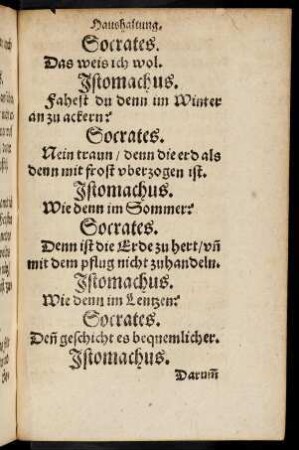 Haushaltung.
Socrates.
Das weis ich wol.
Jstomachus.
Fahest du denn im Winter
an zu ackern?
Socrates.
Nein traun / denn die erd als
denn mit frost vberzogen ist.
Jstomachus.
Wie denn im Sommer?
Socrates.
Denn ist die Erde zu hert / vñ
mit dem pflug nicht zuhandeln.
Jstomachus.
Wie denn im Lentzen?
Socrates.
Deñ geschicht es beqnemlicher.
Jstomachus.
Darum̃